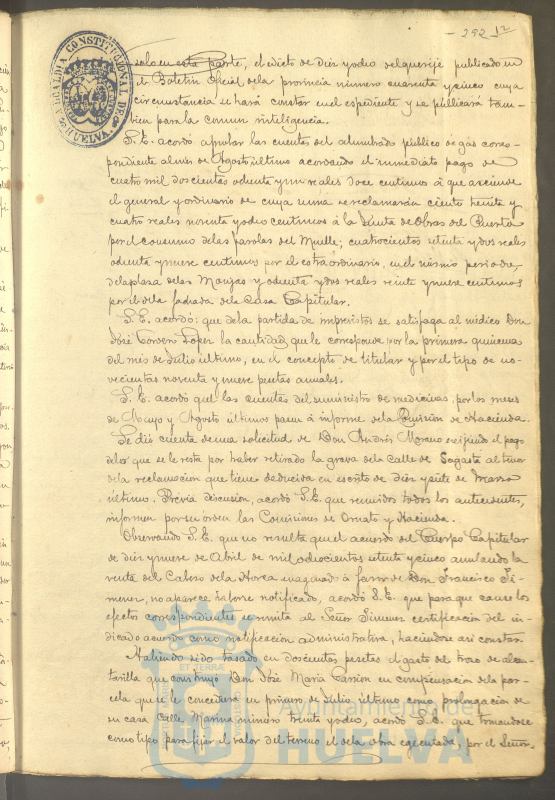 - 292 - 12
ALCALDIA CONSTITUCIONAL DE HUELVA
solo en esta parte, el edicto de diez y ocho del que rije publicado en
el Boletin Oficial de la provincia número cuarenta y cinco cuya
circunstancia se hará constar en el espediente y se publicará tam-
bien para la comun inteligencia.
S. E. acordó aprobar las cuentas del alumbrado público de gas corres-
pondiente al mes de Agosto último acordando el inmediato pago de
cuatro mil doscientos ochenta y un reales doce centimos á que asciende
el general y ordinario de cuya suma se reclamarán ciento treinta y
cuatro reales noventa y ocho centimos á la Junta de Obras del Puerto
por el consumo de las farolas del Muelle; cuatrocientos setenta y dos reales
ochenta y nueve centimos por el estraordinario, en el mismo periodo,
de la plaza de las Monjas y ochenta y dos reales veinte y nueve centimos
por el de la fachada de la Casa Capitular.
S. E. acordó: que de la partida de imprevistos se satisfaga al médico Don
José Cordero Lopez la cantidad que le corresponde por la primera quincena
del mes de Julio último, en el concepto de titular y por el tipo de no-
vecientas noventa y nueve pesetas anuales.
S. E. acordó que las cuentas del suministro de medicinas, por los meses
de Mayo y Agosto últimos pasen á informe de la Comision de Hacienda.
Se dió cuenta de una solicitud de Don Andrés Moreno exijiendo el pago
de lo que se le resta por haber retirado la grava de la Calle de Sagasta al tenor
de la reclamacion que tiene deducida en escrito de diez y siete de Marzo
último. Prévia discusion, acordó S. E. que reunidos todos los antecedentes,
informen por su orden las Comisiones de Ornato y Hacienda.
Observando S. E. que no resulta que el acuerdo del Cuerpo Capitular
de diez y nueve de Abril de mil ochocientos setenta y cinco anulando la
venta del Cabezo de la Horca enagenado á favor de Don Francisco Ji-
menez, no aparece haberse notificado, acordó S. E. que para que cause los
efectos correspondientes se remita al Señor Jimenez certificacion del in-
dicado acuerdo como notificacion administrativa, haciendose asi constar.
Habiendo sido tasado en doscientas pesetas el gasto del trozo de alcan-
tarilla que construyó Don José Maria Carrion en compensacion de la par-
cela que se le concediera en primero de Julio último como prolongacion de
su casa Calle Marina número treinta y ocho, acordó S. E. que tomandose
como tipo para fijar el valor del terreno el de la obra ejecutada, por el Señor
ET TERRÆ
Ayuntamiento de
HUELVA